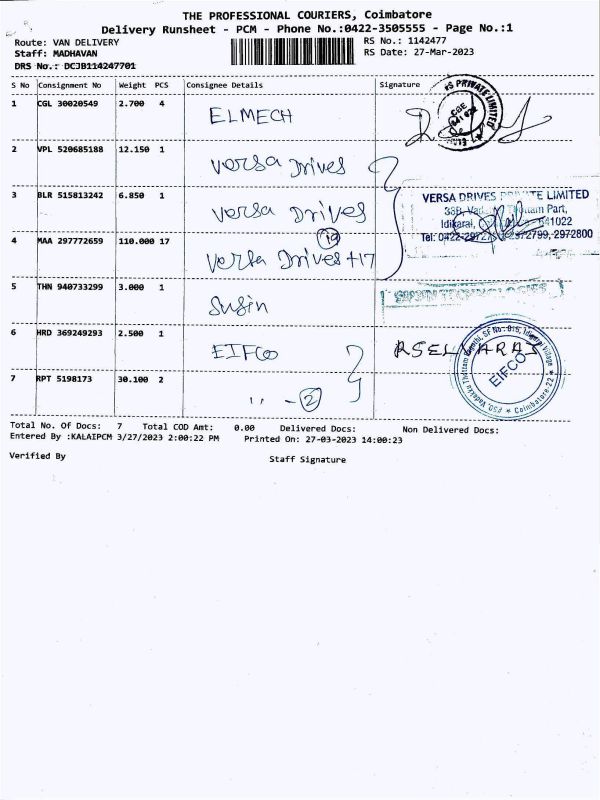 THE PROFESSIONAL COURIERS, Coimbatore
Delivery Runsheet - PCM - Phone No.:0422-3505555 - Page No.:1
Route: VAN DELIVERY RS No.: 1142477
Staff: MADHAVAN RS Date: 27-Mar-2023
DRS No.: DCJB114247701
S No Consignment No Weight PCS Consignee Details Signature
1 CGL 30020549 2.700 4 ELMECH
2 VPL 520685188 12.150 1 Versa Drives
3 BLR 515813242 6.850 1 Versa Drives
VERSA DRIVES PRIVATE LIMITED
Tottam Part,
Idikarai, 641022
Tel: 0422-2972799, 2972800
4 MAA 297772659 110.000 17 Versa Drives +17
19
5 THN 940733299 3.000 1 Susin
SUSIN TECHNOLOGIES
6 HRD 369249293 2.500 1 EIFCO
RSELVARAJ
EIFCO
Coimbatore 22
7 RPT 5198173 30.100 2 ,, - 2
Total No. Of Docs: 7 Total COD Amt: 0.00 Delivered Docs: Non Delivered Docs:
Entered By :KALAIPCM 3/27/2023 2:00:22 PM Printed On: 27-03-2023 14:00:23
Verified By Staff Signature